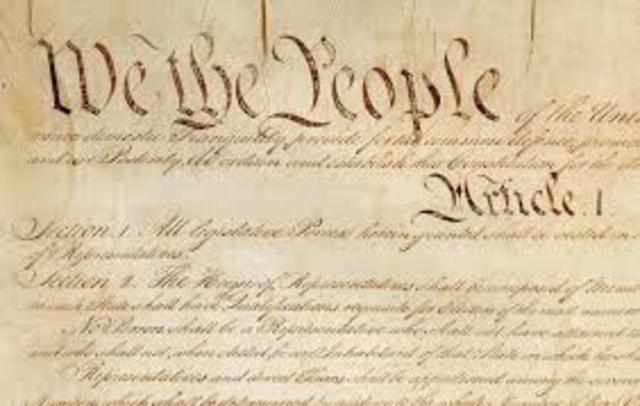 We the People of the Uni
insure domestic Tranquility, provide for the common defence, promo
and our Posterity, do ordain and establish this Constitution for the
Article. I.
Section. 1. All legislative Powers herein granted shall be vested in a
of Representatives.
Section. 2. The House of Representatives shall be composed of Mem
each State shall have Qualifications requisite for Electors of the most numero
No Person shall be a Representative who shall not have attained t
and who shall not, when elected, be an Inhabitant of that State in which he sh
Representatives and direct Taxes shall be apportioned among the severa
Numbers, which shall be determined by adding to the whole Number of